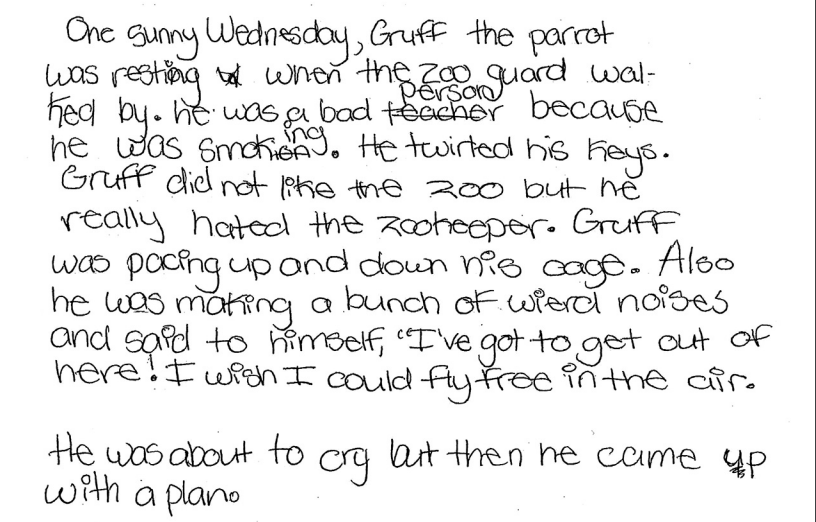 One sunny Wednesday, Gruff the parrot
was resting when the zoo guard wal-
ked by. he was a bad person because
he was smoking. He twirted his keys.
Gruff did not like the zoo but he
really hated the zookeeper. Gruff
was pacing up and down his cage. Also
he was making a bunch of wierd noises
and said to himself, "I've got to get out of
here! I wish I could fly free in the air.
He was about to cry but then he came up
with a plan.